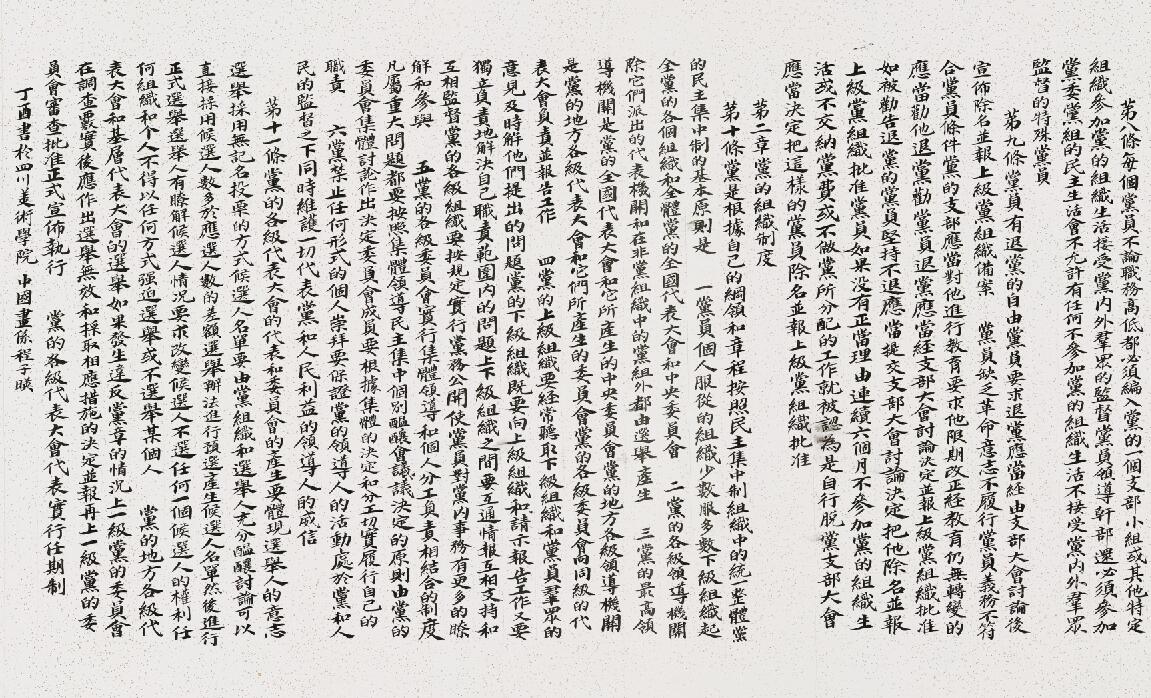 第八條每個黨員不論職務高低都必須編入黨的一個支部小組或其他特定
組織參加黨的組織生活接受黨內外羣眾的監督黨員領導幹部還必須參加
黨委黨組的民主生活會不允許有任何不參加黨的組織生活不接受黨內外羣眾
監督的特殊黨員
第九條黨員有退黨的自由黨員要求退黨應當經由支部大會討論後
宣佈除名並報上級黨組織備案 黨員缺乏革命意志不履行黨員義務不符
合黨員條件黨的支部應當對他進行教育要求他限期改正經教育仍無轉變的
應當勸他退黨勸黨員退黨應當經支部大會討論決定並報上級黨組織批准
如被勸告退黨的黨員堅持不退應當提交支部大會討論決定把他除名並報
上級黨組織批准黨員如果没有正當理由連續六個月不參加黨的組織生
活或不交納黨費或不做黨所分配的工作就被認為是自行脫黨支部大會
應當決定把這樣的黨員除名並報上級黨組織批准
第二章黨的組織制度
第十條黨是根據自己的綱領和章程按照民主集中制組織中的統一整體黨
的民主集中制的基本原則是 一黨員個人服從的組織少數服多數下級組織起
全黨的各個組織和全體黨的全國代表大會和中央委員會 二黨的各級領導機關
除它們派出的代表機關和在非黨組織中的黨組外都由選舉產生 三黨的最高領
導機關是黨的全國代表大會和它所產生的中央委員會黨的地方各級領導機關
是黨的地方各級代表大會和它們所產生的委員會黨的各級委員會向同級的代
表大會負責並報告工作 四黨的上級組織要經常聽取下級組織和黨員羣眾的
意見及時解他們提出的問題黨的下級組織既要向上級組織和請示報告工作又要
獨立負責地解決自己職責範圍內的問題上下級組織之間要互通情報互相支持和
互相監督黨的各級組織要按規定實行黨務公開使黨員對黨內事務有更多的瞭
解和參與 五黨的各級委員會實行集體領導和個人分工負責相結合的制度
凡屬重大問題都要按照集體領導民主集中個別醞釀會議議決定的原則由黨的
委員會集體討論作出決定委員會成員要根據集體的決定和分工切實履行自己的
職責 六黨禁止任何形式的個人崇拜要保證黨的領導人的活動處於黨和人
民的監督之下同時維護一切代表黨和人民利益的領導人的威信
第十一條黨的各級代表大會的代表和委員會的產生要體現選舉人的意志
選舉採用無記名投票的方式候選人名單要由黨組織和選舉人充分醞釀討論可以
直接採用候選人數多於應選人數的差額選舉辦法進行預選產生候選人名單然後進行
正式選舉選舉人有瞭解候選人情況要求改變候選人不選任何一個候選人的權利任
何組織和个人不得以任何方式强迫選舉或不選舉某個人 黨的地方各級代
表大會和基層代表大會的選舉如果發生違反黨章的情況上一級黨的委員會
在調查覈實後應作出選舉無效和採取相應措施的決定並報再上一級黨的委
員會審查批准正式宣佈執行 黨的各級代表大會代表實行任期制
丁酉書於四川美術學院 中國畫係程子暎